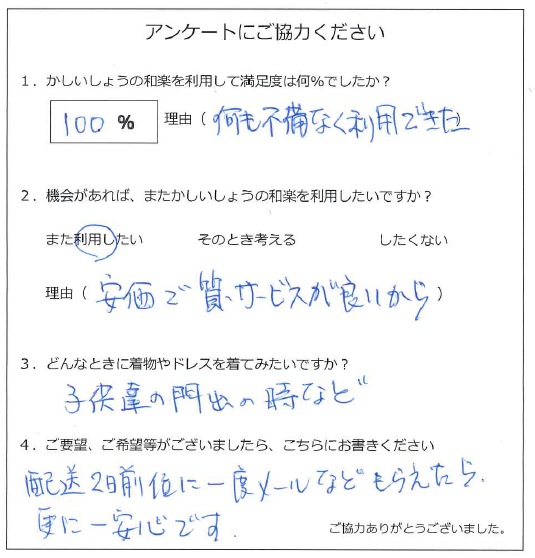 アンケートにご協力ください
1．かしいしょうの和楽を利用して満足度は何％でしたか？
100 ％ 理由（何も不備なく利用できた）
2．機会があれば、またかしいしょうの和楽を利用したいですか？
また利用したい そのとき考える したくない
理由（安価で質、サービスが良いから）
3．どんなときに着物やドレスを着てみたいですか？
子供達の門出の時など
4．ご要望、ご希望等がございましたら、こちらにお書きください
配送2日前位に一度メールなどもらえたら、
更に一安心です。
ご協力ありがとうございました。